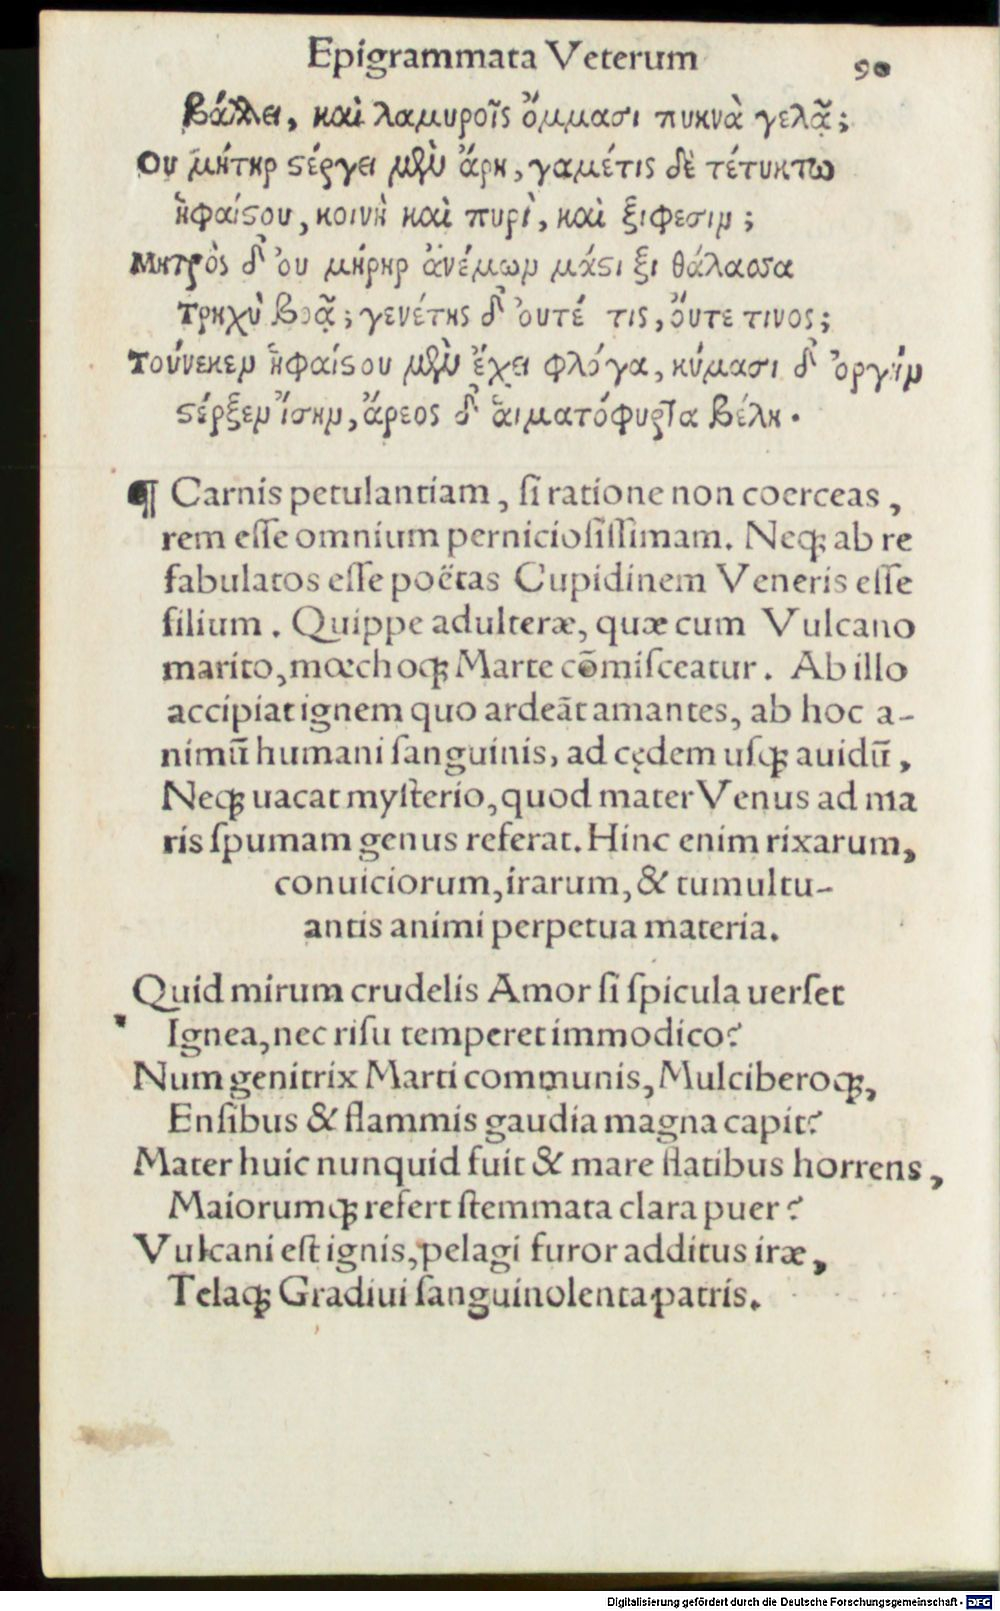 Epigrammata Veterum 90
βάλλει, καὶ λαμυροῖς ὄμμασι πυκνὰ γελᾷ;
Ου μήτηρ ϛέργει μὲν ἄρη, γαμέτις δὲ τέτυκτω
ἡφαίϛου, κοινὴ καὶ πυρὶ, καὶ ξιφεσιν;
Μητρὸς δ' ου μήρηρ ἀνέμων μάϛι ξι θάλαοσα
τρηχὺ βοᾷ; γενέτης δ' ουτέ τις, ὄυτε τινος;
Τούνεκεν ἡφαίϛου μὲν ἔχει φλόγα, κύμασι δ' ὀργήν
ϛέρξεν ἴσην, ἄρεος δ' ἁιματόφυρτα βέλη.
¶ Carnis petulantiam, ſi ratione non coerceas,
rem eſſe omnium pernicioſiſſimam. Neqꝫ ab re
fabulatos eſſe poëtas Cupidinem Veneris eſſe
filium. Quippe adulteræ, quæ cum Vulcano
marito, mœchoqꝫ Marte cōmiſceatur. Ab illo
accipiat ignem quo ardeāt amantes, ab hoc a-
nimū humani ſanguinis, ad cędem uſqꝫ auidū,
Neqꝫ uacat myſterio, quod mater Venus ad ma
ris ſpumam genus referat. Hinc enim rixarum,
conuiciorum, irarum, & tumultu-
antis animi perpetua materia.
Quid mirum crudelis Amor ſi ſpicula uerſet
Ignea, nec riſu temperet immodico?
Num genitrix Marti communis, Mulciberoqꝫ,
Enſibus & flammis gaudia magna capit?
Mater huic nunquid fuit & mare flatibus horrens,
Maiorumqꝫ refert ſtemmata clara puer?
Vulcani eſt ignis, pelagi furor additus iræ,
Telaqꝫ Gradiui ſanguinolenta patris.
Digitalisierung gefördert durch die Deutsche Forschungsgemeinschaft - DFG